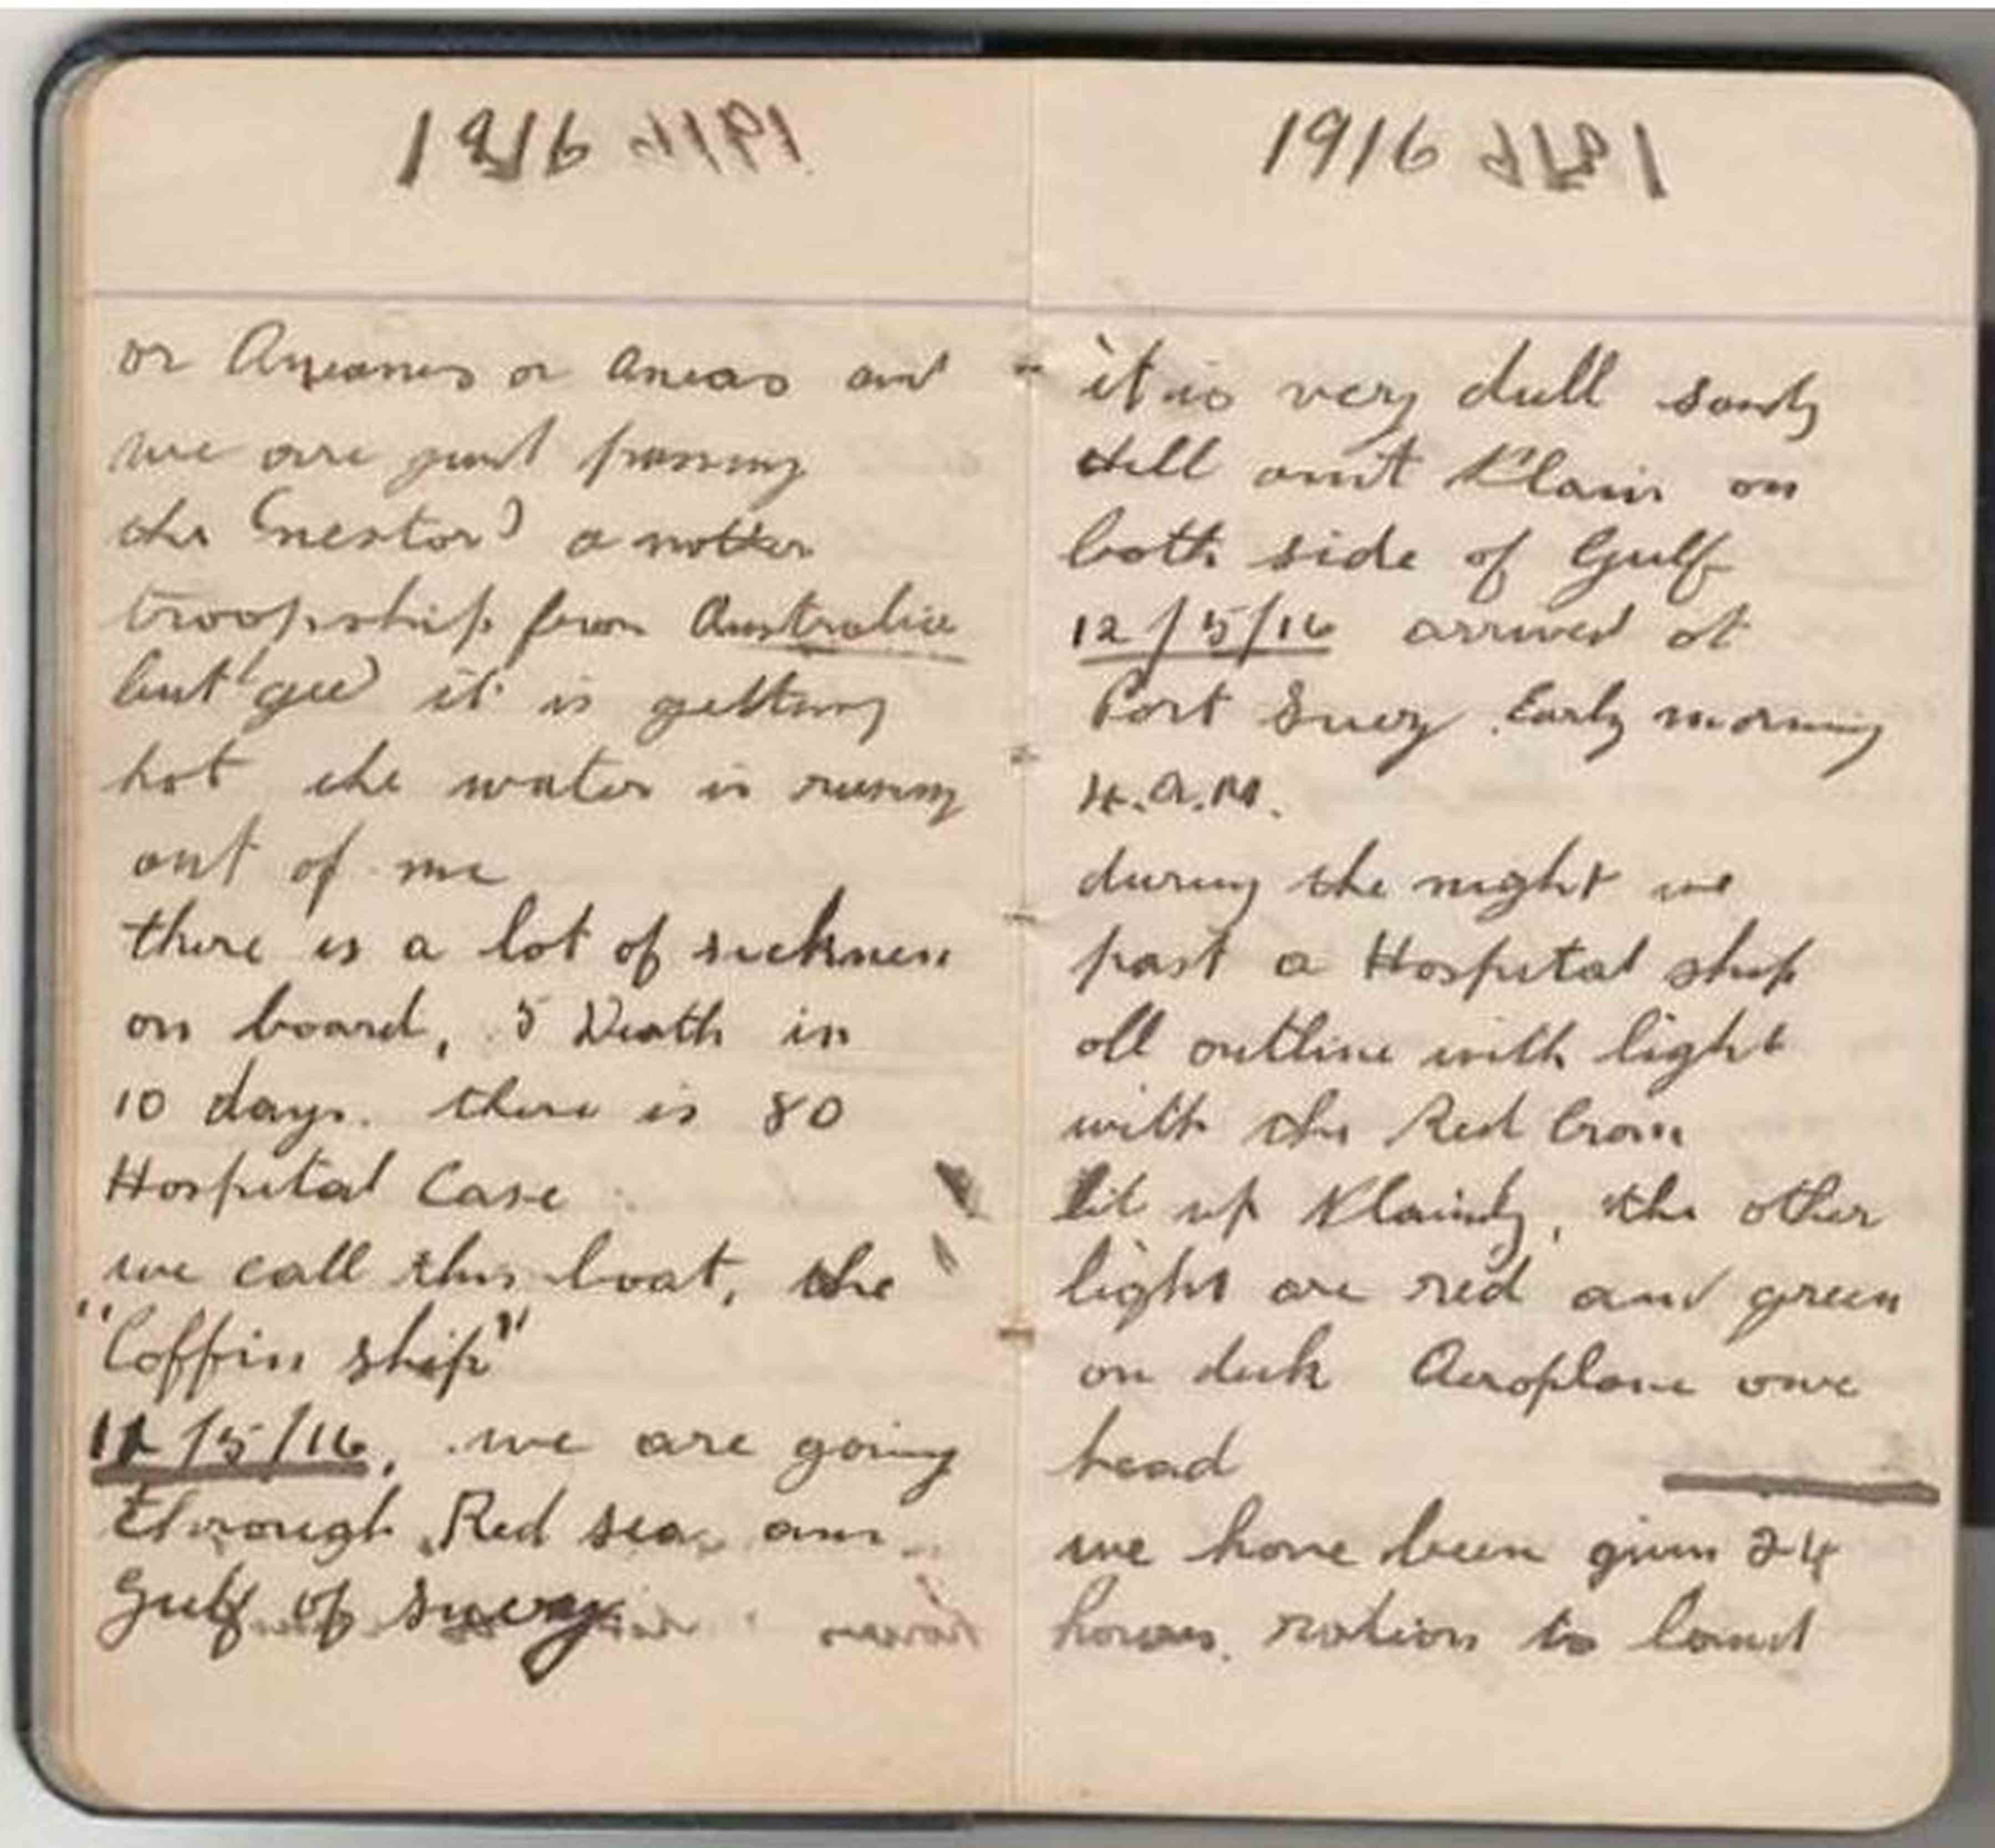 1916
or Aneas and
we are just passing
the (nestor) a nother
troopship from Australia
but 'gee' it is getting
hot the water is runing
out of me
there is a lot of sickness
on board, 5 Death in
10 days. there is 80
Hospital Case
we call this boat, the
"Coffin ship"
11/5/16, we are going
through Red sea, and
Gulf of Suez
1916
it is very dull sandy
Hill and Plain on
both side of Gulf
12/5/16 arrived at
Port Suez. Early morning
4.A.M.
during the night we
past a Hospital ship
all outline with light
with the Red Cross
lit up Plainly, the other
light are red and green
on deck Aeroplane over
head
we have been given 24
hours ration to land